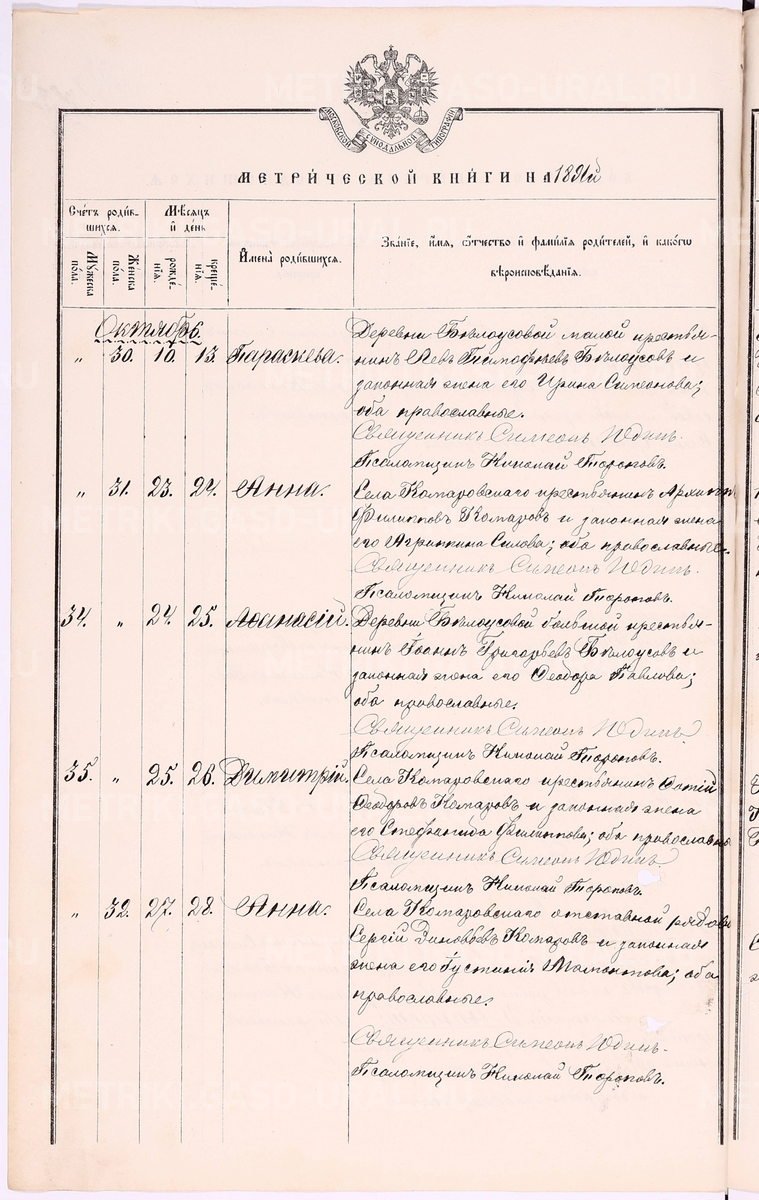 МОСКОВСКОЙ СѴНОДАЛЬНОЙ ТИПОГРАФІИ
МЕТРИ́ЧЕСКОЙ КНИ́ГИ НА 1891й
Сче́тъ роди́вшихся.
Мѣ́сяцъ и҆ де́нь
И҆мена̀ роди́вшихся.
Зва́нїе, и҆́мя, ѻ҆́тчество и҆ фамѝлїѧ роди́телей, и҆ како́гѡ вѣроисповѣ́данїѧ.
Мꙋ́жеска по́ла.
Же́нска по́ла.
рожде́нїѧ.
креще́нїѧ.
Октябрь.
„ 30. 10. 13. Параскева.
Деревни Бѣлоусовой малой крестья-
нинъ Левъ Тимоѳеевъ Бѣлоусовъ и
законная жена его Ирина Симеонова;
оба православные.
Священникъ Симеонъ Юдинъ.
Псаломщикъ Николай Тороповъ.
„ 31. 23. 24. Анна.
Села Комаровскаго крестьянинъ Архипъ
Филипповъ Комаровъ и законная жена
его Агрипина Силова; оба православные.
Священникъ Симеонъ Юдинъ.
Псаломщикъ Николай Тороповъ.
34. „ 24. 25. Аѳанасій.
Деревни Бѣлоусовой большой крестья-
нинъ Іоаннъ Григорьевъ Бѣлоусовъ и
законная жена его Ѳеодора Павлова;
оба православные.
Священникъ Симеонъ Юдинъ
Псаломщикъ Николай Тороповъ.
35. „ 25. 26. Димитрій.
Села Комаровскаго крестьянинъ
Ѳеодоровъ Комаровъ и законная жена
его Стефанида Филиппова; оба православн
Священникъ Симеонъ Юдинъ
Псаломщикъ Николай Тороповъ.
„ 32. 27. 28. Анна.
Села Комаровскаго отставной рядово
Сергій Зиновьевъ Комаровъ и законная
жена его Іустинія Мамонтова; оба
православные.
Священникъ Симеонъ Юдинъ.
Псаломщикъ Николай Тороповъ.